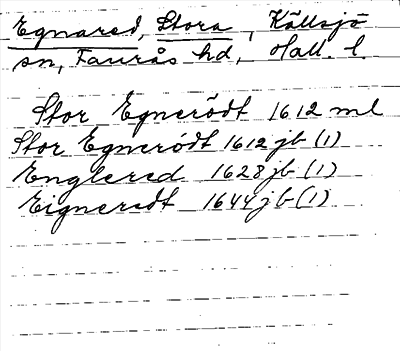 Egnared, Stora, Källsjö
sn, Faurås hd, Hall. l.
Stor Egnerödt 1612 ml
Stor Egnerödt 1612 jb (1)
Englered 1628 jb (1)
Eigneredt 1644 jb (1)